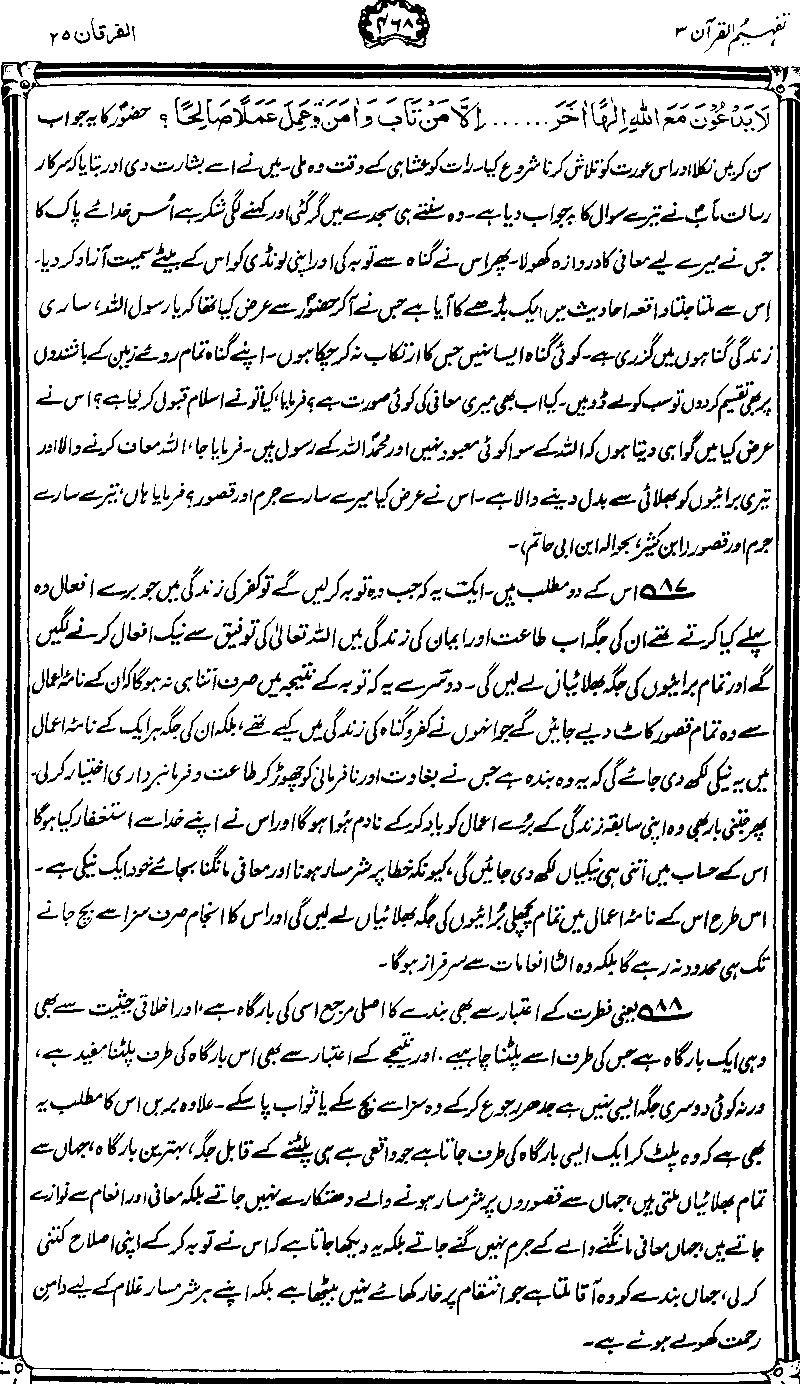 تفہیم القرآن ۳
۴۶۸
الفرقان ۲۵
لَا يَدْعُوْنَ مَعَ اللّٰهِ اِلٰهًا اٰخَرَ ...... اِلَّا مَنْ تَابَ وَاٰمَنَ وَعَمِلَ عَمَلًا صَالِحًا ؟ حضورؐ کا یہ جواب
سن کر میں نکلا اور اس عورت کو تلاش کرنا شروع کیا۔ رات کو عشا ہی کے وقت وہ ملی۔ میں نے اسے بشارت دی اور بتایا کہ سرکار
رسالت مآبؐ نے تیرے سوال کا یہ جواب دیا ہے۔ وہ سنتے ہی سجدے میں گر گئی اور کہنے لگی شکر ہے اُس خدائے پاک کا
جس نے میرے لیے معافی کا دروازہ کھولا۔ پھر اس نے گناہ سے توبہ کی اور اپنی لونڈی کو اس کے بیٹے سمیت آزاد کر دیا۔
اِس سے ملتا جلتا واقعہ احادیث میں ایک بڈھے کا آیا ہے جس نے آکر حضورؐ سے عرض کیا تھا کہ یا رسول اللہ، ساری
زندگی گناہوں میں گزری ہے۔ کوئی گناہ ایسا نہیں جس کا ارتکاب نہ کر چکا ہوں۔ اپنے گناہ تمام روئے زمین کے باشندوں
پر بھی تقسیم کردوں تو سب کو لے ڈوبیں۔ کیا اب بھی میری معافی کی کوئی صورت ہے؟ فرمایا، کیا تو نے اسلام قبول کر لیا ہے؟ اس نے
عرض کیا میں گواہی دیتا ہوں کہ اللہ کے سوا کوئی معبود نہیں اور محمدؐ اللہ کے رسول ہیں۔ فرمایا جا، اللہ معاف کرنے والا اور
تیری برائیوں کو بھلائی سے بدل دینے والا ہے۔ اس نے عرض کیا میرے سارے جرم اور قصور؟ فرمایا ہاں، تیرے سارے
جرم اور قصور (ابن کثیر، بحوالہ ابن ابی حاتم)۔
۸۷ اس کے دو مطلب ہیں۔ ایک یہ کہ جب وہ توبہ کر لیں گے تو کفر کی زندگی میں جو برے افعال وہ
پہلے کیا کرتے تھے ان کی جگہ اب طاعت اور ایمان کی زندگی میں اللہ تعالیٰ کی توفیق سے نیک افعال کرنے لگیں
گے اور تمام برائیوں کی جگہ بھلائیاں لے لیں گی۔ دوسرے یہ کہ توبہ کے نتیجہ میں صرف اتنا ہی نہ ہوگا کہ ان کے نامۂ اعمال
سے وہ تمام قصور کاٹ دیے جائیں گے جو انہوں نے کفر و گناہ کی زندگی میں کیے تھے، بلکہ ان کی جگہ ہر ایک کے نامۂ اعمال
میں یہ نیکی لکھ دی جائے گی کہ یہ وہ بندہ ہے جس نے بغاوت اور نافرمانی کو چھوڑ کر طاعت و فرمانبرداری اختیار کر لی۔
پھر جتنی بار بھی وہ اپنی سابقہ زندگی کے بُرے اعمال کو یاد کرکے نادم ہُوا ہوگا اور اس نے اپنے خدا سے استغفار کیا ہوگا
اس کے حساب میں اتنی ہی نیکیاں لکھ دی جائیں گی، کیونکہ خطا پر شرمسار ہونا اور معافی مانگنا بجائے خود ایک نیکی ہے۔
اس طرح اس کے نامۂ اعمال میں تمام پچھلی بُرائیوں کی جگہ بھلائیاں لے لیں گی اور اس کا انجام صرف سزا سے بچ جانے
تک ہی محدود نہ رہے گا بلکہ وہ الٹا انعامات سے سرفراز ہوگا۔
۸۸ یعنی فطرت کے اعتبار سے بھی بندے کا اصلی مرجع اسی کی بارگاہ ہے، اور اخلاقی حیثیت سے بھی
وہی ایک بارگاہ ہے جس کی طرف اسے پلٹنا چاہیے، اور نتیجے کے اعتبار سے بھی اس بارگاہ کی طرف پلٹنا مفید ہے،
ورنہ کوئی دوسری جگہ ایسی نہیں ہے جدھر رجوع کرکے وہ سزا سے بچ سکے یا ثواب پا سکے۔ علاوہ بریں اس کا مطلب یہ
بھی ہے کہ وہ پلٹ کر ایک ایسی بارگاہ کی طرف جاتا ہے جو واقعی ہے ہی پلٹنے کے قابل جگہ، بہترین بارگاہ، جہاں سے
تمام بھلائیاں ملتی ہیں، جہاں سے قصوروں پر شرمسار ہونے والے دھتکارے نہیں جاتے بلکہ معافی اور انعام سے نوازے
جاتے ہیں، جہاں معافی مانگنے والے کے جرم نہیں گنے جاتے بلکہ یہ دیکھا جاتا ہے کہ اس نے توبہ کرکے اپنی اصلاح کتنی
کر لی، جہاں بندے کو وہ آقا ملتا ہے جو انتقام پر خار کھائے نہیں بیٹھا ہے بلکہ اپنے ہر شرمسار غلام کے لیے دامنِ
رحمت کھولے ہوئے ہے۔